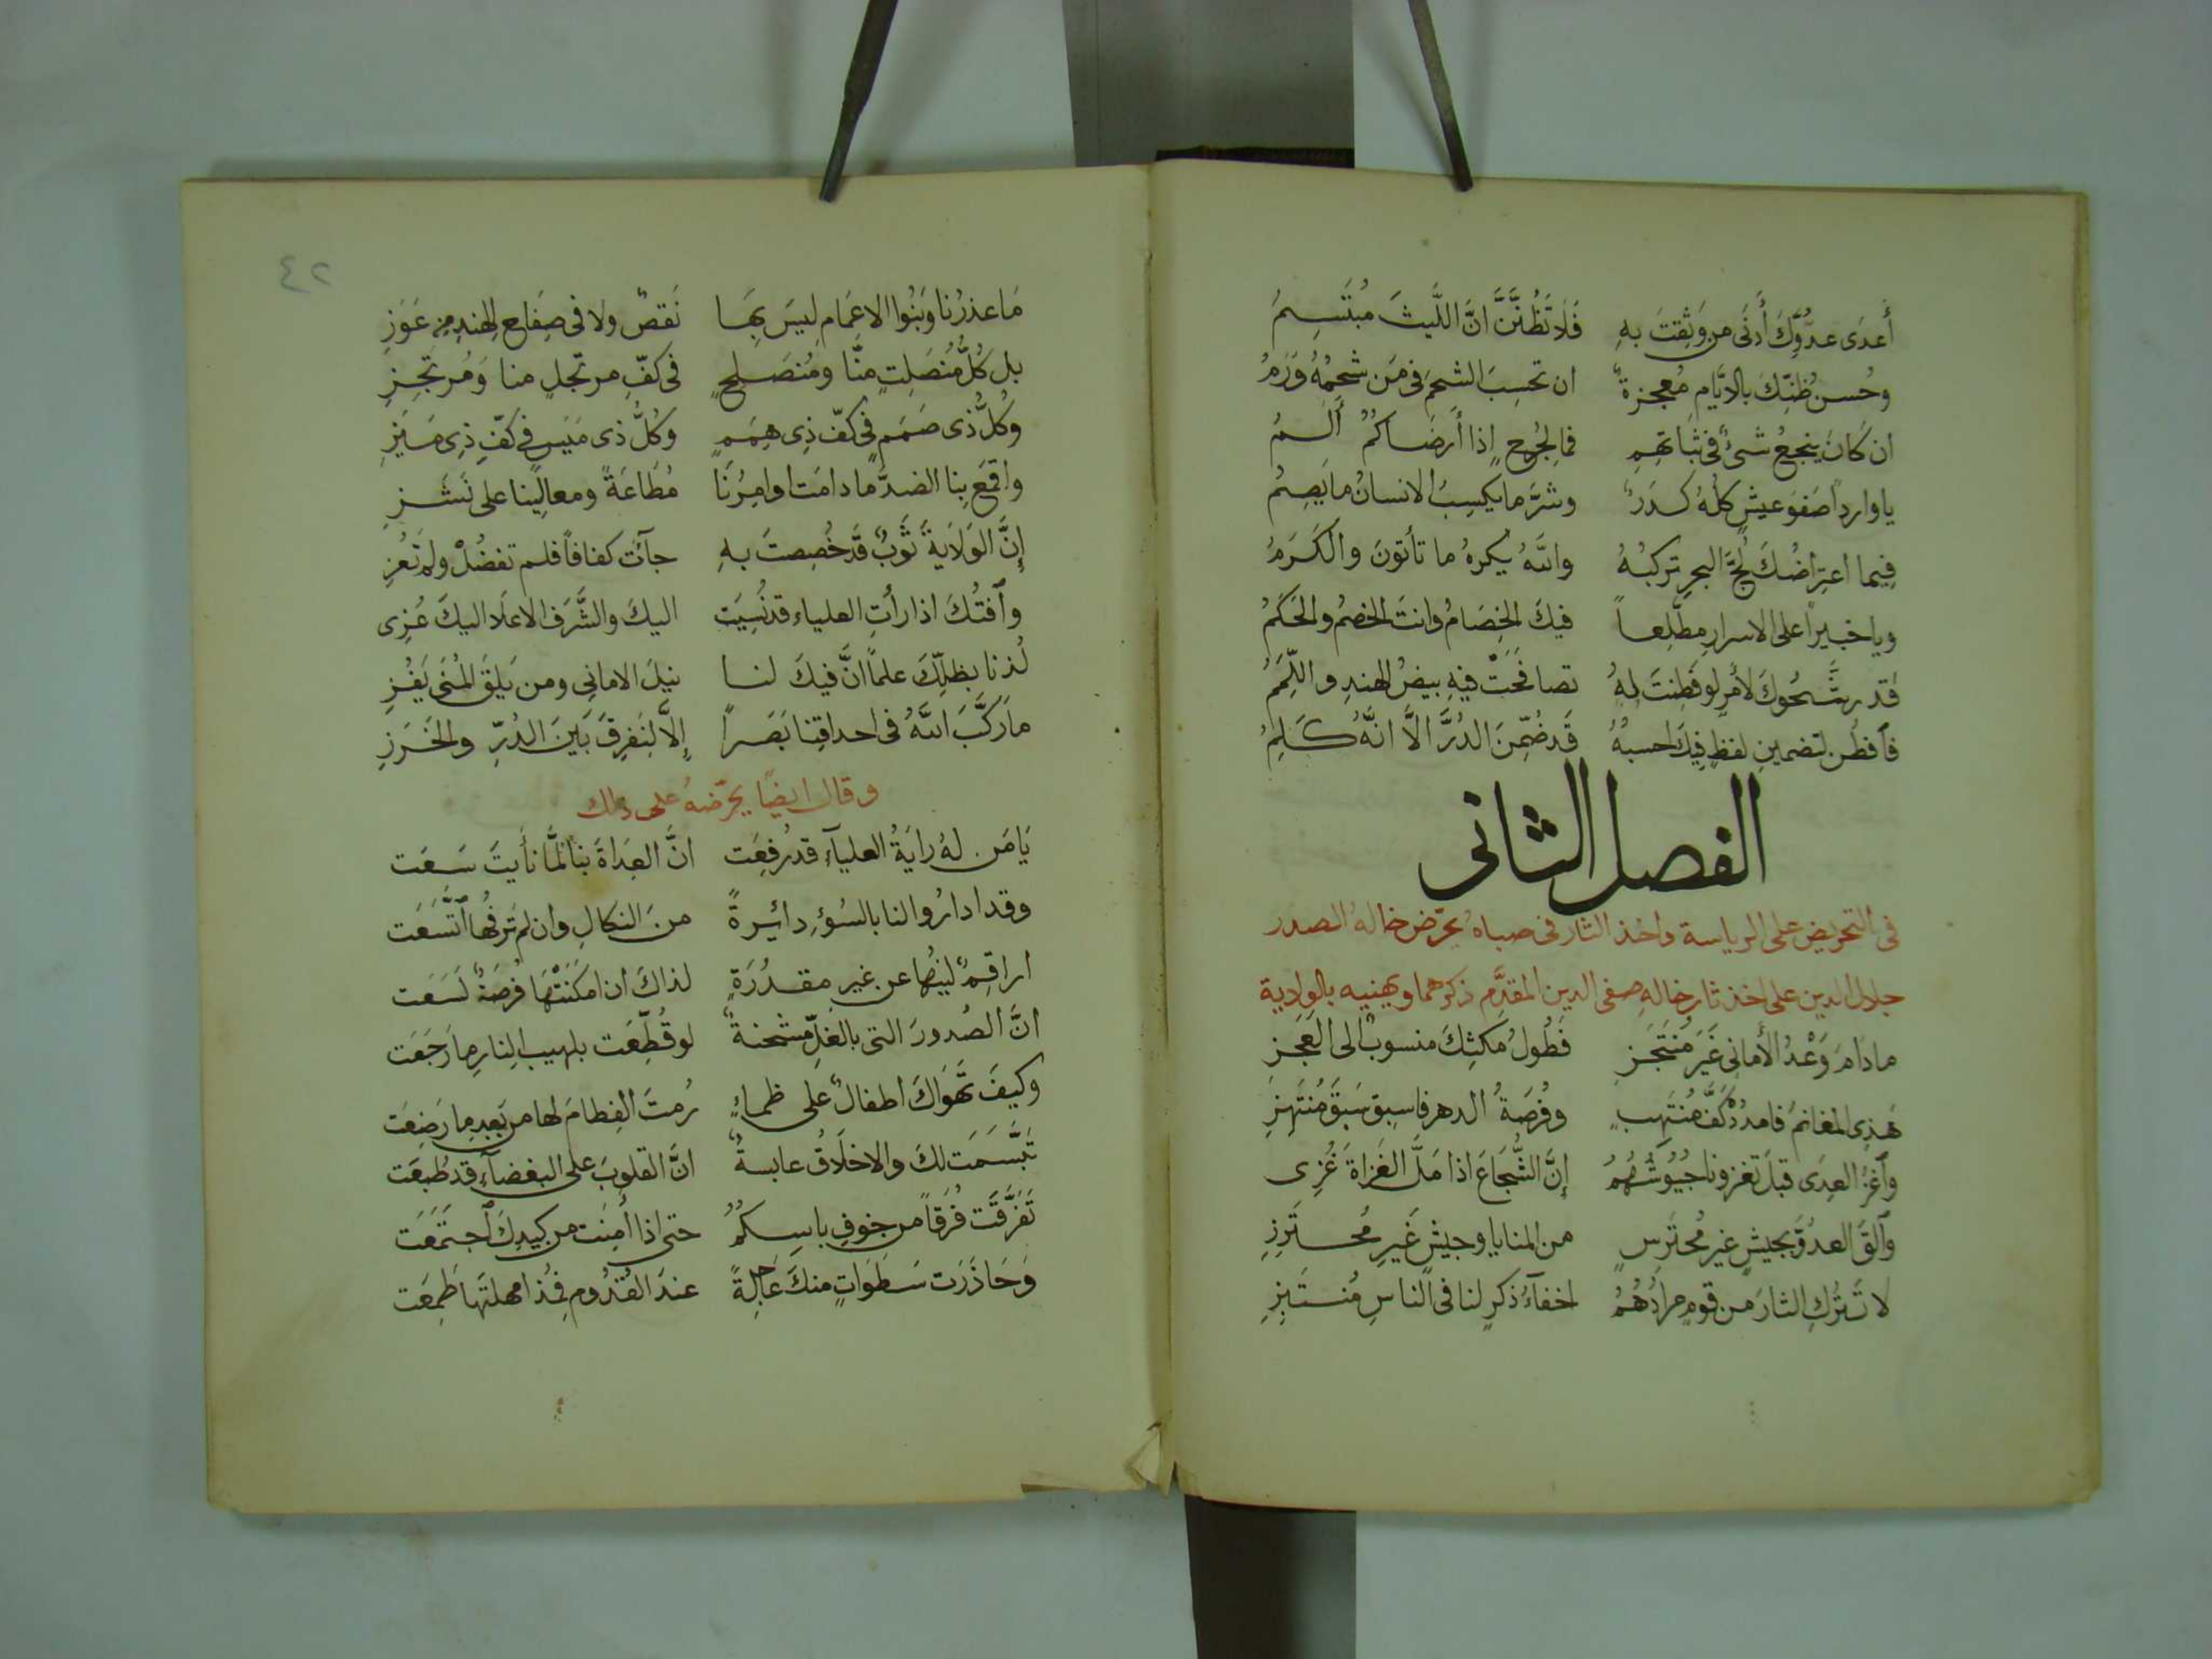 أَعدَى عدُوِّكَ أَدنَى من وَثِقتَ بهِ فَلَا تَظُنَّنَّ انَّ اللَّيثَ مُبتَسِمُ
وحُسنُ ظنِّكَ بالايَّامِ مُعجزةٌ ان تحسِبَ الشحمَ فى مَن شحمُهُ وَرَمُ
ان كَانَ ينجعُ شىءٌ فى ثباتهِمِ فما لِجُرحٍ اذا أَرضَاكُمُ أَلَمُ
يا وارداً صَفوَ عيشٍ كلُهُ كدَرٌ وشرَّ ما يكسِبُ الانسانُ ما يَصِمُ
فِيما اعتِراضُكَ لُجَّ البحرِ تركبُهُ واللهُ يكرهُ ما تأتونَ والكَرَمُ
ويا خبيراً على الاسرارِ مطَّلِعاً فيكَ الخِصَامُ وانتَ الخصمُ والحَكَمُ
قد رشَّحُوكَ لأمرٍ لو فَطِنتَ لهُ تصافَحَتْ فيهِ بيضُ الهندِ واللِّمَمُ
فٱفطُن لتضمينِ لفظٍ فيكَ احسبُهُ قَد ضُمِّنَ الدُرَّ الَّا انَّهُ كَلِمُ
الفصل الثانى
فى التحريض على الرياسة واخذ الثار فى صباه يحرّض خاله الصدر
جلال الدين على اخذ ثار خاله صفى الدين المقدَّم ذكرهما ويهنيه بالولاية
مادَامَ وَعْدُ الأَمانِى غَيرَ مُنتَجَزِ فَطُولُ مَكثِكَ منسوبٌ الى العَجَزِ
هَذِى المغانمُ فامدُدْ كَفَّ مُنتَهِبٍ وفُرصَةُ الدهرِ فاسبِق سَبقَ مُنتَهِزِ
وٱغزُ العِدَى قبلَ تغزونا جُيُوشُهُمُ إِنَّ الشُّجَاعَ اذا مَلَّ الغَزاةَ غُزِى
وٱلقَ العدُوَّ بجيشٍ غيرِ مُحتَرِسٍ من المنايا وجيشٍ غَيرِ مُحتَرِزِ
لا تَترُكِ الثارَ من قومٍ مرادُهُمُ اخفآءُ ذكرٍ لنا فى الناسِ مُنتَبِزِ
٤٢
مَا عذرُنا وَبَنُوا الاعمَامِ ليسَ بِهَا نَقصٌ ولا فى صِفَاحِ الهندِ مِن عَوَزِ
بل كُلُّ مُنصَلِتٍ منَّا ومُنصَلحٍ فى كفِّ مرتجلٍ منا وَمُرتجِزِ
وكُلُّ ذى صَمَمٍ فى كفّ ذِى هِمَمٍ وكُلُّ ذى مَيَسٍ فى كفّ ذِى مَيَزِ
واقمَع بِنا الضدَّ ما دامَت اوامِرُنَا مُطَاعَةً ومعالِينا على نَشَزِ
إنَّ الوَلَايةَ ثَوبٌ قَد خُصِصتَ بهِ جآئت كفافاً فلم تفضُلْ ولم تَعُزِ
وٱفتُكَ اذا رأتِ العلياء قد نُسِيَت اليكَ والشَّرَفَ الاعلَا اليكَ عُزِى
لُذنا بظلِّكَ علماً انَّ فيكَ لنا نيلَ الامانِى ومن يَلقَ المُنَى يَفُزِ
ما رَكَّبَ اللهُ فى احداقِنا بَصَراً إلَّا لنَفرِقَ بَينَ الدُرِّ والخَرَزِ
وقال ايضًا يحرّضه على ذلك
يَا مَن لهُ رايَةُ العليآءِ قد رُفِعَت انَّ العِداةَ بنا لمَّا نأيتَ سَعَت
وقد اداروا لنا بالسُوءِ دائِرةً منَ النكالِ وان لم تَرفُها ٱتَّسَعَت
اراقمٌ لينُها عن غيرِ مقدُرَةٍ لذاكَ ان امكَنَتْهَا فُرصَةٌ لَسَعَت
انَّ الصُدورَ التى بالغلِّ مشحنةٌ لو قُطِّعَت بلهيبِ النارِ ما رَجَعَت
وكيفَ تَهوَاكَ اطفالٌ على ظماءٍ رُمتَ الفِطامَ لها من بَعدِ ما رَضِعَت
تَبَسَّمَت لكَ والاخلَاقُ عابسةٌ انَّ القلوبَ على البغضآءِ قد طُبعَت
تَفَرَّقَت فُرَقاً من خوفِ باسِكُمُ حتى اذا أمِنَت من كيدِكَ ٱجتَمَعَت
وَحَاذَرَت سَطَوَاتٍ منكَ عَاجِلةً عندَ القُدُومِ فمُذ امهلتَها طَمِعَت